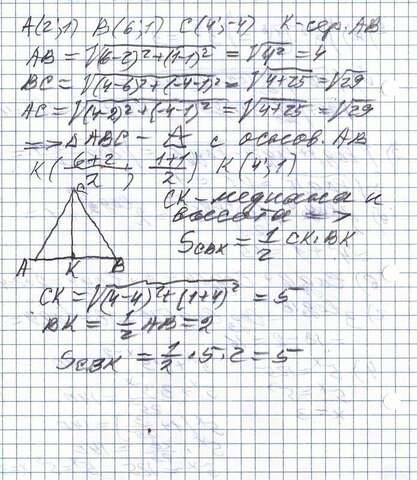 A(2;1) B(6;1) C(4;-4) K-сер. AB
AB = √(6-2)²+(1-1)² = √4² = 4
BC = √(4-6)²+(-4-1)² = √4+25 = √29
AC = √(4-2)²+(-4-1)² = √4+25 = √29
=> ΔABC - △ с основ. AB
K(6+2/2; 1+1/2) K(4;1)
CK-медиана и
высота =>
S CBK = 1/2 CK·BK
C
A K B
CK = √(4-4)²+(1+4)² = 5
BK = 1/2 AB = 2
S CBK = 1/2 · 5 · 2 = 5